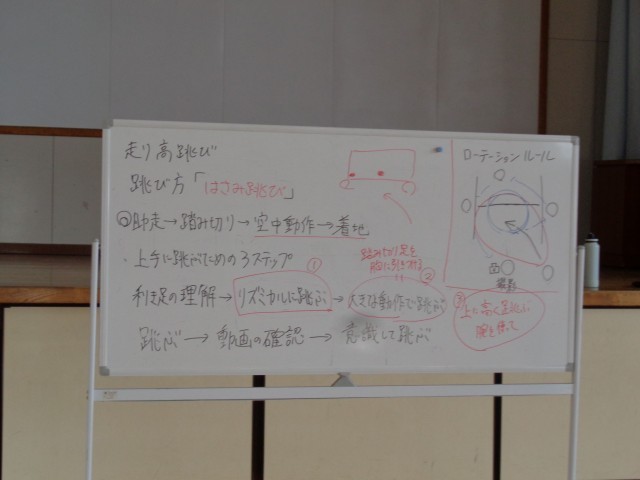 走り高跳び
跳び方「はさみ跳び」
◎助走→踏み切り→空中動作→着地
・上手に跳ぶための3ステップ
踏み切り足を
胸に引きつける
① ②
利き足の理解→リズミカルに跳ぶ→大きな動作で跳ぶ
跳ぶ→動画の確認→意識して跳ぶ
ローテーションルール
③上に高く
腕を使って